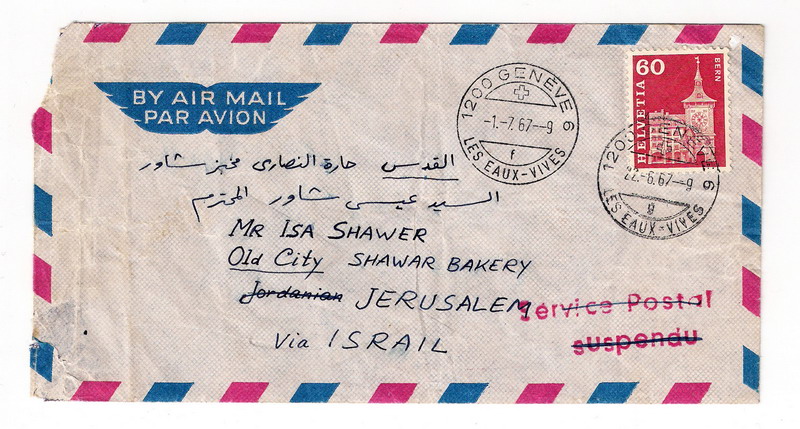 BY AIR MAIL
PAR AVION
1200 GENÈVE 6
-1.-7.67--9
f
LES EAUX-VIVES
60
HELVETIA
BERN
1200 GENÈVE 6
22.-6.67--9
g
LES EAUX-VIVES
القدس حارة النصارى مخبز شاور
السيد عيسى شاور المحترم
MR ISA SHAWER
Old City SHAWAR BAKERY
Jordanian JERUSALEM
Via ISRAIL
Service Postal
suspendu